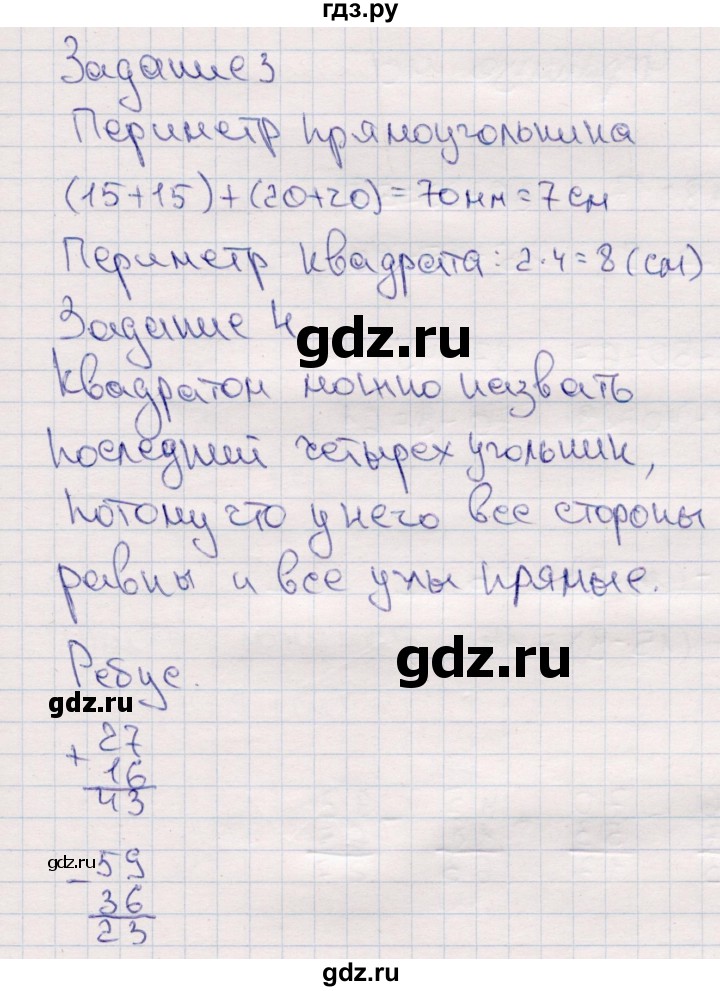 гдз.ру
Задание 3
Периметр прямоугольника
(15+15)+(20+20)=70мм=7см
Периметр квадрата: 2·4=8(см)
Задание 4
gdz.ru
Квадратом можно назвать
последний четырехугольник,
потому что у него все стороны
равны и все углы прямые.
gdz.ru
Ребус.
gdz.ru
+ 27
16
43
gdz.ru
- 59
36
23
gdz.ru